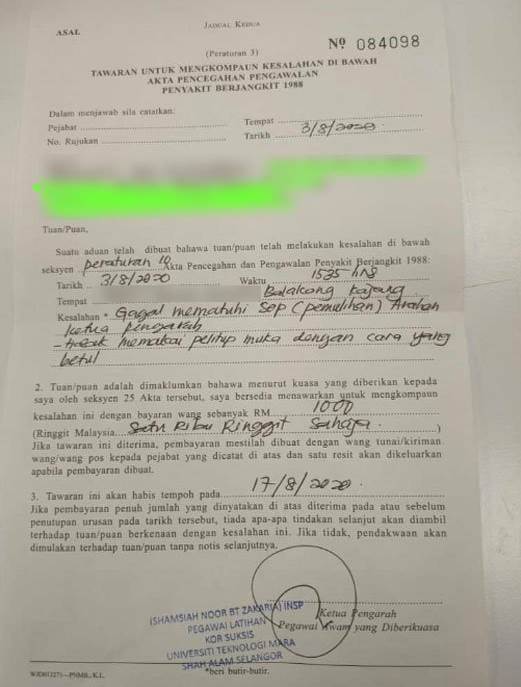 ASAL
JADUAL KEDUA
(Peraturan 3)
Nº 084098
TAWARAN UNTUK MENGKOMPAUN KESALAHAN DI BAWAH
AKTA PENCEGAHAN PENGAWALAN
PENYAKIT BERJANGKIT 1988
Dalam menjawab sila catatkan:
Pejabat
Tempat
No. Rujukan
Tarikh 3/8/2020
Tuan/Puan,
Suatu aduan telah dibuat bahawa tuan/puan telah melakukan kesalahan di bawah
seksyen peraturan 10 Akta Pencegahan dan Pengawalan Penyakit Berjangkit 1988:
Tarikh 3/8/2020 Waktu 1535 hrs
Tempat Balakong Kajang
Kesalahan * Gagal mematuhi SOP (pemulihan) Arahan
Ketua Pengarah
- tidak memakai pelitup muka dengan cara yang
betul
2. Tuan/puan adalah dimaklumkan bahawa menurut kuasa yang diberikan kepada
saya oleh seksyen 25 Akta tersebut, saya bersedia menawarkan untuk mengkompaun
kesalahan ini dengan bayaran wang sebanyak RM 1000
(Ringgit Malaysia Satu Ribu Ringgit Sahaja. )
Jika tawaran ini diterima, pembayaran mestilah dibuat dengan wang tunai/kiriman
wang/wang pos kepada pejabat yang dicatat di atas dan satu resit akan dikeluarkan
apabila pembayaran dibuat.
3. Tawaran ini akan habis tempoh pada 17/8/2020.
Jika pembayaran penuh jumlah yang dinyatakan di atas diterima pada atau sebelum
penutupan urusan pada tarikh tersebut, tiada apa-apa tindakan selanjut akan diambil
terhadap tuan/puan berkenaan dengan kesalahan ini. Jika tidak, pendakwaan akan
dimulakan terhadap tuan/puan tanpa notis selanjutnya.
(SHAMSIAH NOOR BT ZAKARIA) INSP
PEGAWAI LATIHAN
KOR SUKSIS
UNIVERSITI TEKNOLOGI MARA
SHAH ALAM SELANGOR
Ketua Pengarah
Pegawai Awam yang Diberikuasa
*beri butir-butir.
—PNMB., K.L.